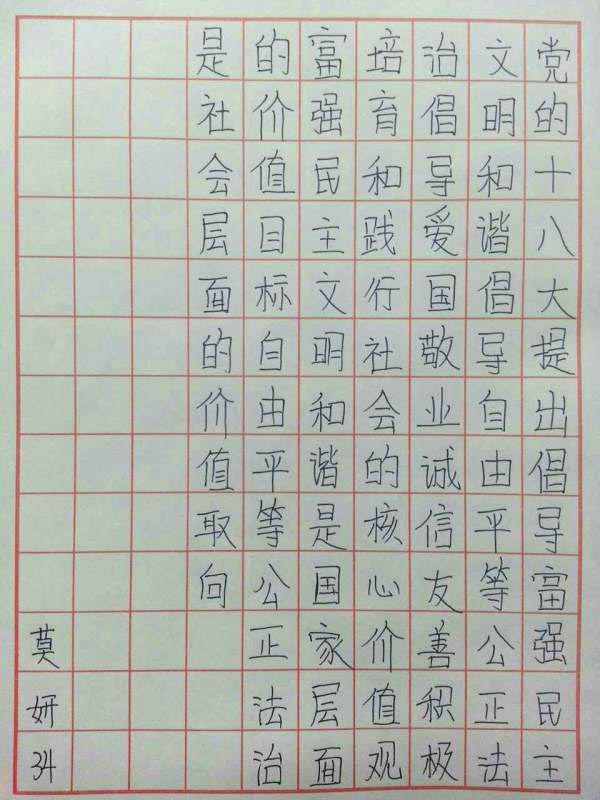 党的十八大提出倡导富强民主
文明和谐倡导自由平等公正法
治倡导爱国敬业诚信友善积极
培育和践行社会核心价值观
富强民主文明和谐是国家层面
的价值目标自由平等公正法治
是社会层面的价值取向
莫妍34